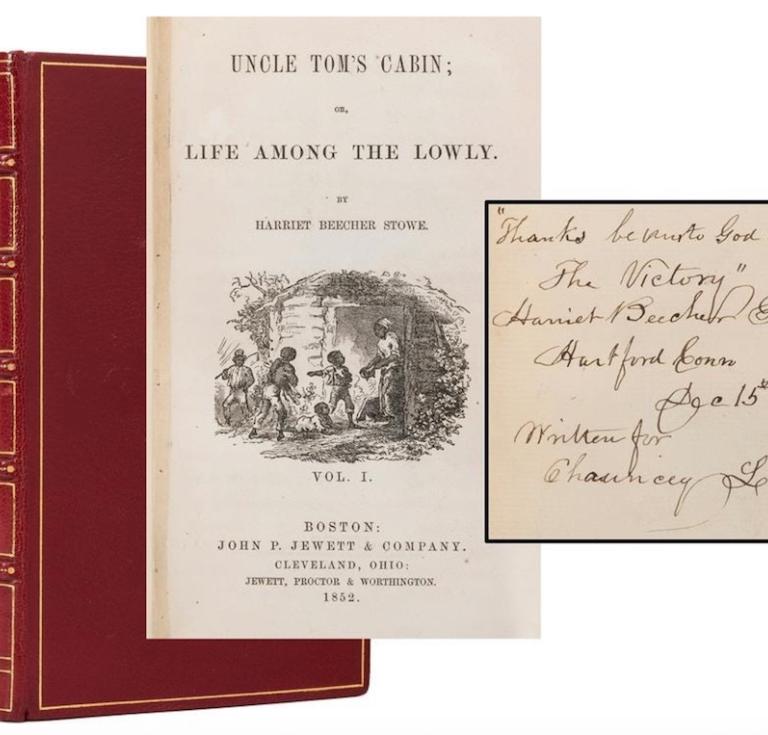 UNCLE TOM'S CABIN;
OR,
LIFE AMONG THE LOWLY.
BY
HARRIET BEECHER STOWE.
VOL. I.
BOSTON:
JOHN P. JEWETT & COMPANY.
CLEVELAND, OHIO:
JEWETT, PROCTOR & WORTHINGTON.
1852.
"Thanks be unto God
The Victory"
Harriet Beecher
Hartford Conn
Dec 15
Written for
Chauncey